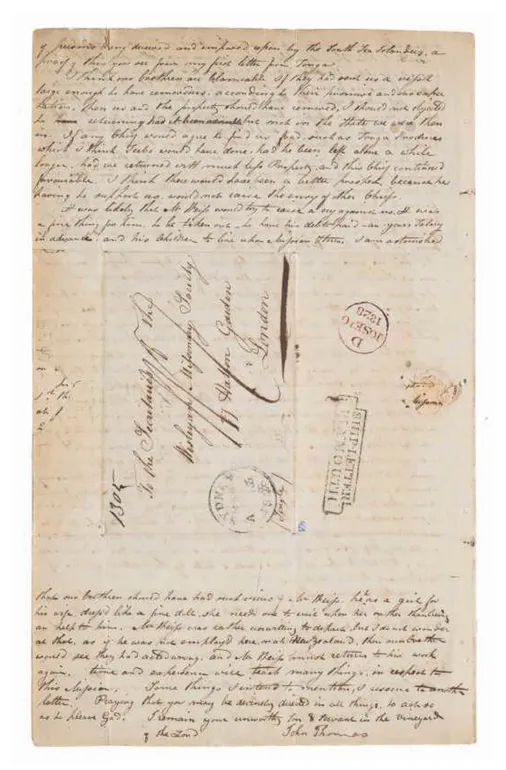 of persons being deceived and imposed upon by the South Sea Islanders, a
proof of this you see from my first letter from Tonga.
I think our brethren are blameable if they had sent us a vessel
large enough to have removed us, according to their promise and our expec
tations, then us and the property should have removed, I should not
returning but such on the State we were then
in. If any Chief would agree to find us food, such as Tonga produces
which I think Tubo would have done, had he been left alone a while
longer, had we returned with much less Property, and this Chief continued
favourable. I think there would have been a better prospect, because he
having to support us, would not raise the envy of other Chiefs.
It was likely that Mr Weiss would try to raise a cry against us. It was
a fine thing for him, to be taken out, to have his debts paid, a years Salary
in advance, and his Children to live upon Mission Stores. I am astonished
To the Secretaries of the
Wesleyan Missionary Society
Hatton Garden
London
1305
Single
D
10 SE 10
1828
SHIP-LETTER
PLYMOUTH
that our brethren should have had such views of Mr Weiss, he has a girl for
his wife, dress'd like a fine doll, she needs one to wait upon her rather than being
an help to him. Mr Weiss was rather unwilling to depart, but I do not wonder
at that, as if he was not employed here, or at New Zealand, then our brethren
would see they had acted wrong, and Mr Weiss must return to his work
again. time and experience will teach many things, in respect to
this Mission. Some things I intend to mention, I reserve to another
letter. Praying that you may be divinely directed in all things, to act so
as to please God. I remain your unworthy Son & Servant in the vineyard
of the Lord
John Thomas